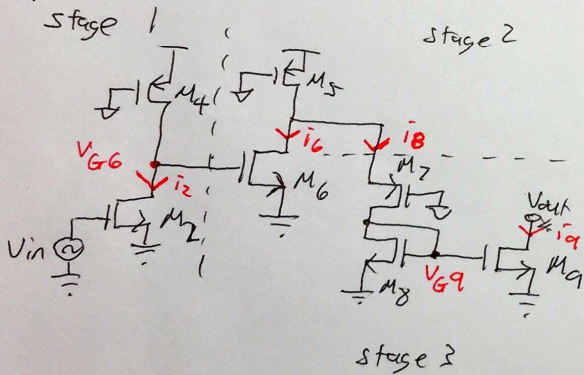 stage 1
stage 2
M4
M5
VG6
i2
i6
i8
M7
M6
M2
Vin
Vout
i9
M8
VG9
M9
stage 3